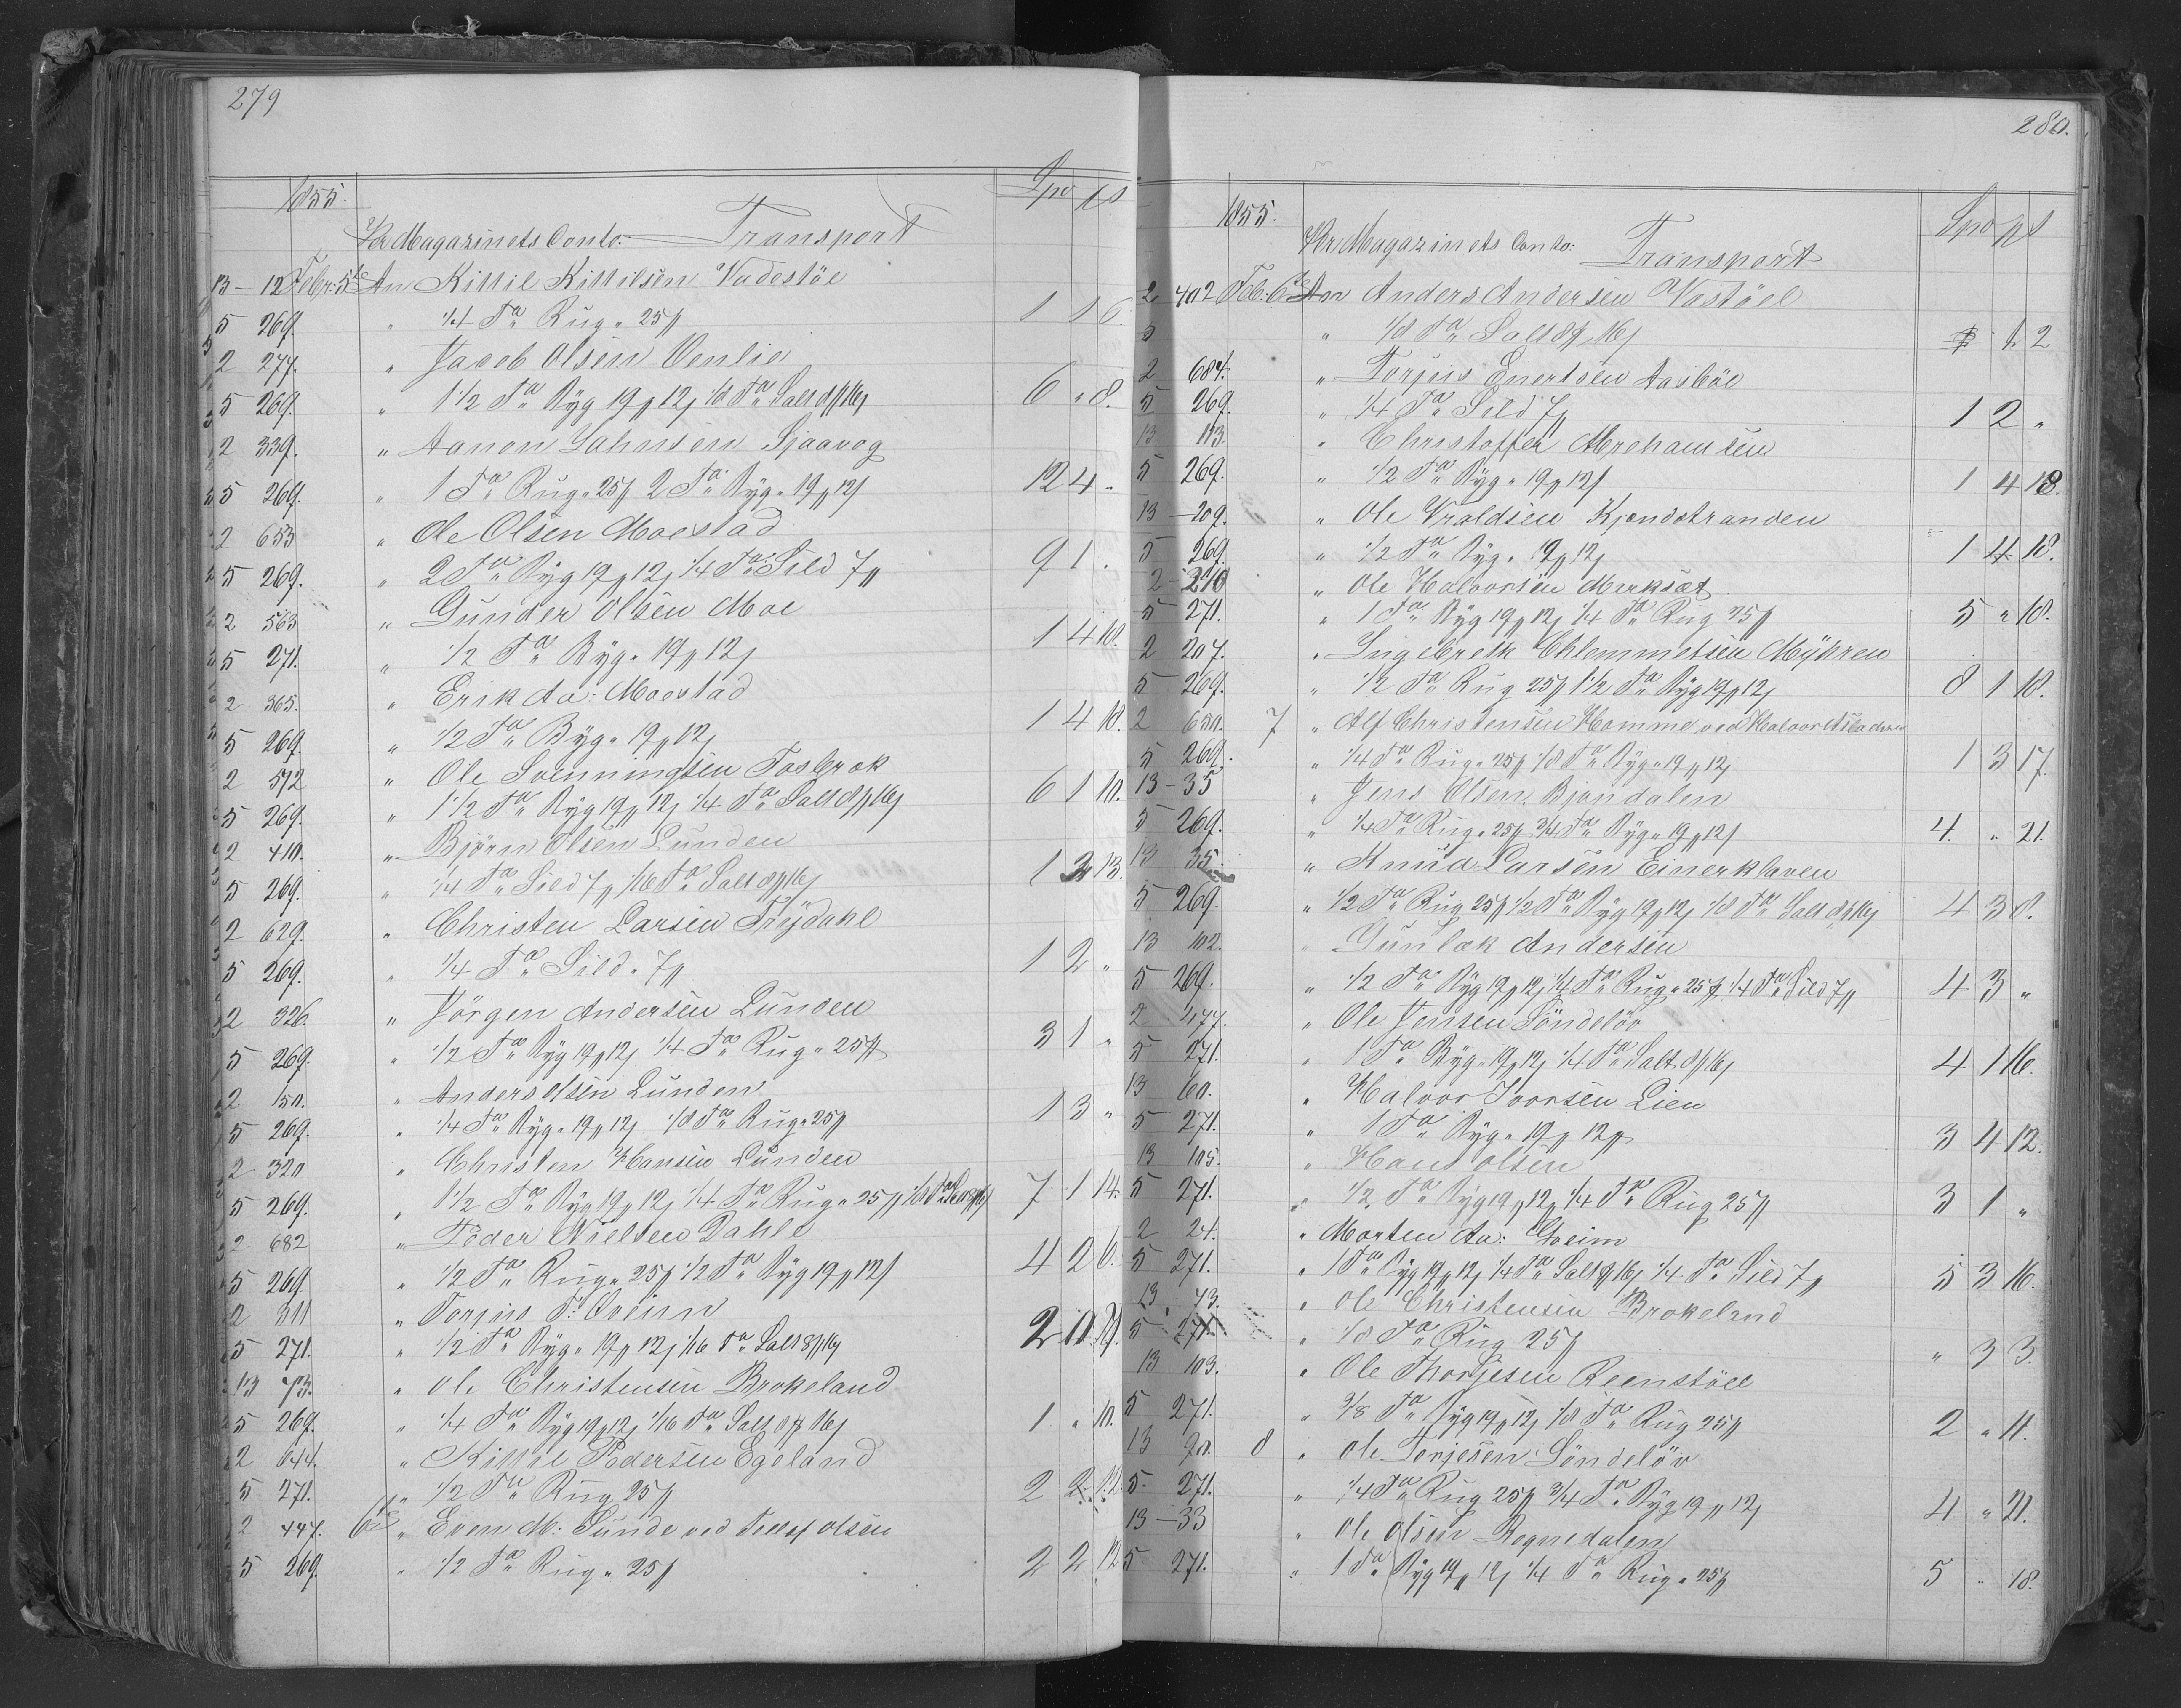 279
1855. Spd
Kr Magazinets Conto: Transport
13 - 12 Febr: 5te An Kittil Kittilsen Vadestöe
5 269. " 1/4 Tde Rug " 25/ 1 1 6.
2 277. " Jacob Olsen Venlie
5 269. " 1 1/2 Tde Byg 19 12 1/8 Tde Salt 8 16 6 " 8.
2 339. " Aanon Jahnsen Sjaavog
5 269. " 1 Tde Rug " 25/ 2 Tde Byg " 19 12 12 4 "
2 653 " Ole Olsen Moestad
5 269. " 2 Tde Byg 19 12 1/4 Tde Sild 7 9 1 "
2 563 " Gunder Olsen Moe
5 271. " 1/2 Tde Byg " 19 12 1 4 18.
2 365. " Erik Aa: Moestad
5 269. " 1/2 Tde Byg " 19 12 1 4 18.
2 512 " Ole Svenningsen Fosbrok
5 269. " 1 1/2 Tde Byg 19 12 1/4 Tde Salt 8 16 6 1 10.
2 410. " Björn Olsen Lunden
5 269. " 1/4 Tde Sild 7 1/16 Tde Salt 8 16 1 2 13.
2 629. " Christen Larsen Tröjdahl
5 269. " 1/4 Tde Sild " 7 1 2 "
2 326. " Jörgen Andersen Lunden
5 269. " 1/2 Tde Byg 19 12 1/4 Tde Rug " 25/ 3 1 "
2 150. " Anders Olsen Lunden
5 269. " 1/4 Tde Byg " 19 12 1/8 Tde Rug " 25/ 1 3 "
2 320 " Christen Hansen Lunden
5 269. " 1 1/2 Tde Byg 19 12 1/4 Tde Rug " 25/ 1/8 Tde Salt 8 16 7 1 14.
2 682 " Peder Nielsen Dahle
5 269. " 1/2 Tde Rug " 25/ 1/2 Tde Byg 19 12 4 2 6.
2 311 " Torjus T: Öveinn
5 271. " 1/2 Tde Byg " 19 12 1/16 Tde Salt 8 16 2
13 73. " Ole Christensen Brokeland
5 269. " 1/4 Tde Byg 19 12 1/16 Tde Salt 8 16 1 " 10.
2 644. " Kittil Pedersen Egeland
5 271. " 1/2 Tde Rug 25/ 2 2 12.
2 447. 6te " Even M: Sunde ved Tellef Olsen
5 269. " 1/2 Tde Rug " 25/ 2 2 12
280.
1855. Spd
Kr Magazinets Conto: Transport
2 402 Feb: 6te An Anders Andersen Vastöel
5 " 1/8 Tde Salt 8 16 1. 2
2 684. " Torjus Enertsen Aasböe
5 269. " 1/4 Tde Sild 7 1 2 "
13 113. " Christoffer Abrehamsen
5 269. " 1/2 Tde Byg " 19 12 1 4 18.
13 - 209. " Ole Vraldsen Kjendstranden
5 269. " 1/2 Tde Byg " 19 12 1 4 18.
2 - 270 " Ole Halvorsen Merksæt
5 271. " 1 Tde Byg 19 12 1/4 Tde Rug 25/ 5 " 18.
2 207. " Ingebreth Chlemmetsen Myhren
5 269. " 1/2 Tde Rug 25/ 1 1/2 Tde Byg 19 12 8 1 18.
2 650. 7 " Alf Christensen Homme ved Halvor Asladsen
5 269. " 1/4 Tde Rug " 25/ 1/8 Tde Byg " 19 12 1 3 17.
13 - 35 " Jens Olsen Bjondalen
5 269. " 1/4 Tde Rug " 25/ 3/4 Tde Byg " 19 12 4. " 21.
13 35. " Knud Larsen Einerkhaven
5 269. " 1/2 Tde Rug 25/ 1/2 Tde Byg 19 12 1/8 Tde Salt 8 16 4 3 8.
13 102. " Gunlak Andersen
5 269. " 1/2 Tde Byg 19 12 1/4 Tde Rug " 25/ 1/4 Tde Sild 7 4 3 "
2 477. " Ole Jensen Söndelöv
5 271. " 1 Tde Byg " 19 12 1/4 Tde Salt 8 16 4 1 16.
13 60. " Halvor Ivorsen Lien
5 271. " 1 Tde Byg " 19 12 3 4 12.
13 105. " Hans Olsen
5 271. " 1/2 Tde Byg 19 12 1/4 Tde Rug 25/ 3 1 "
2 24. " Morten Aa: Gheim
5 271. " 1 Tde Byg 19 12 1/4 Tde Salt 8 16 1/4 Tde Sild 7 5 3 16.
13 73. " Ole Christensen Brokeland
5 271. " 1/8 Tde Rug 25/ " 3 3.
13 103. " Ole Thorjesen Reenstöll
5 271. " 3/8 Tde Byg 19 12 1/8 Tde Rug 25/ 2 " 11.
13 90. 8 " Ole Terjesen Söndelöv
5 271. " 1/4 Tde Rug 25/ 3/4 Tde Byg 19 12 4 " 21.
13 - 33 " Ole Olsen Rognedalen
5 271. " 1 Tde Byg 19 12 1/4 Tde Rug " 25/ 5 " 18.